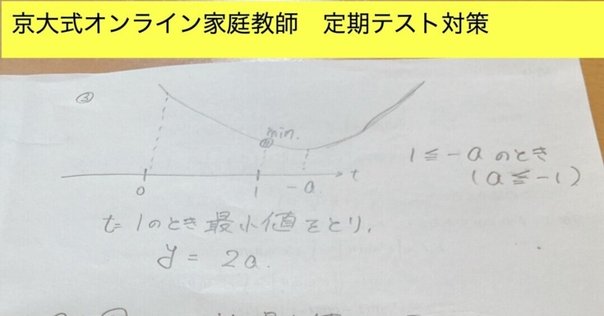 京大式オンライン家庭教師 定期テスト対策
③
min.
0 1 -a t
1 ≦ -a のとき
(a ≦ -1)
t= 1のとき最小値をとり,
y = 2a.